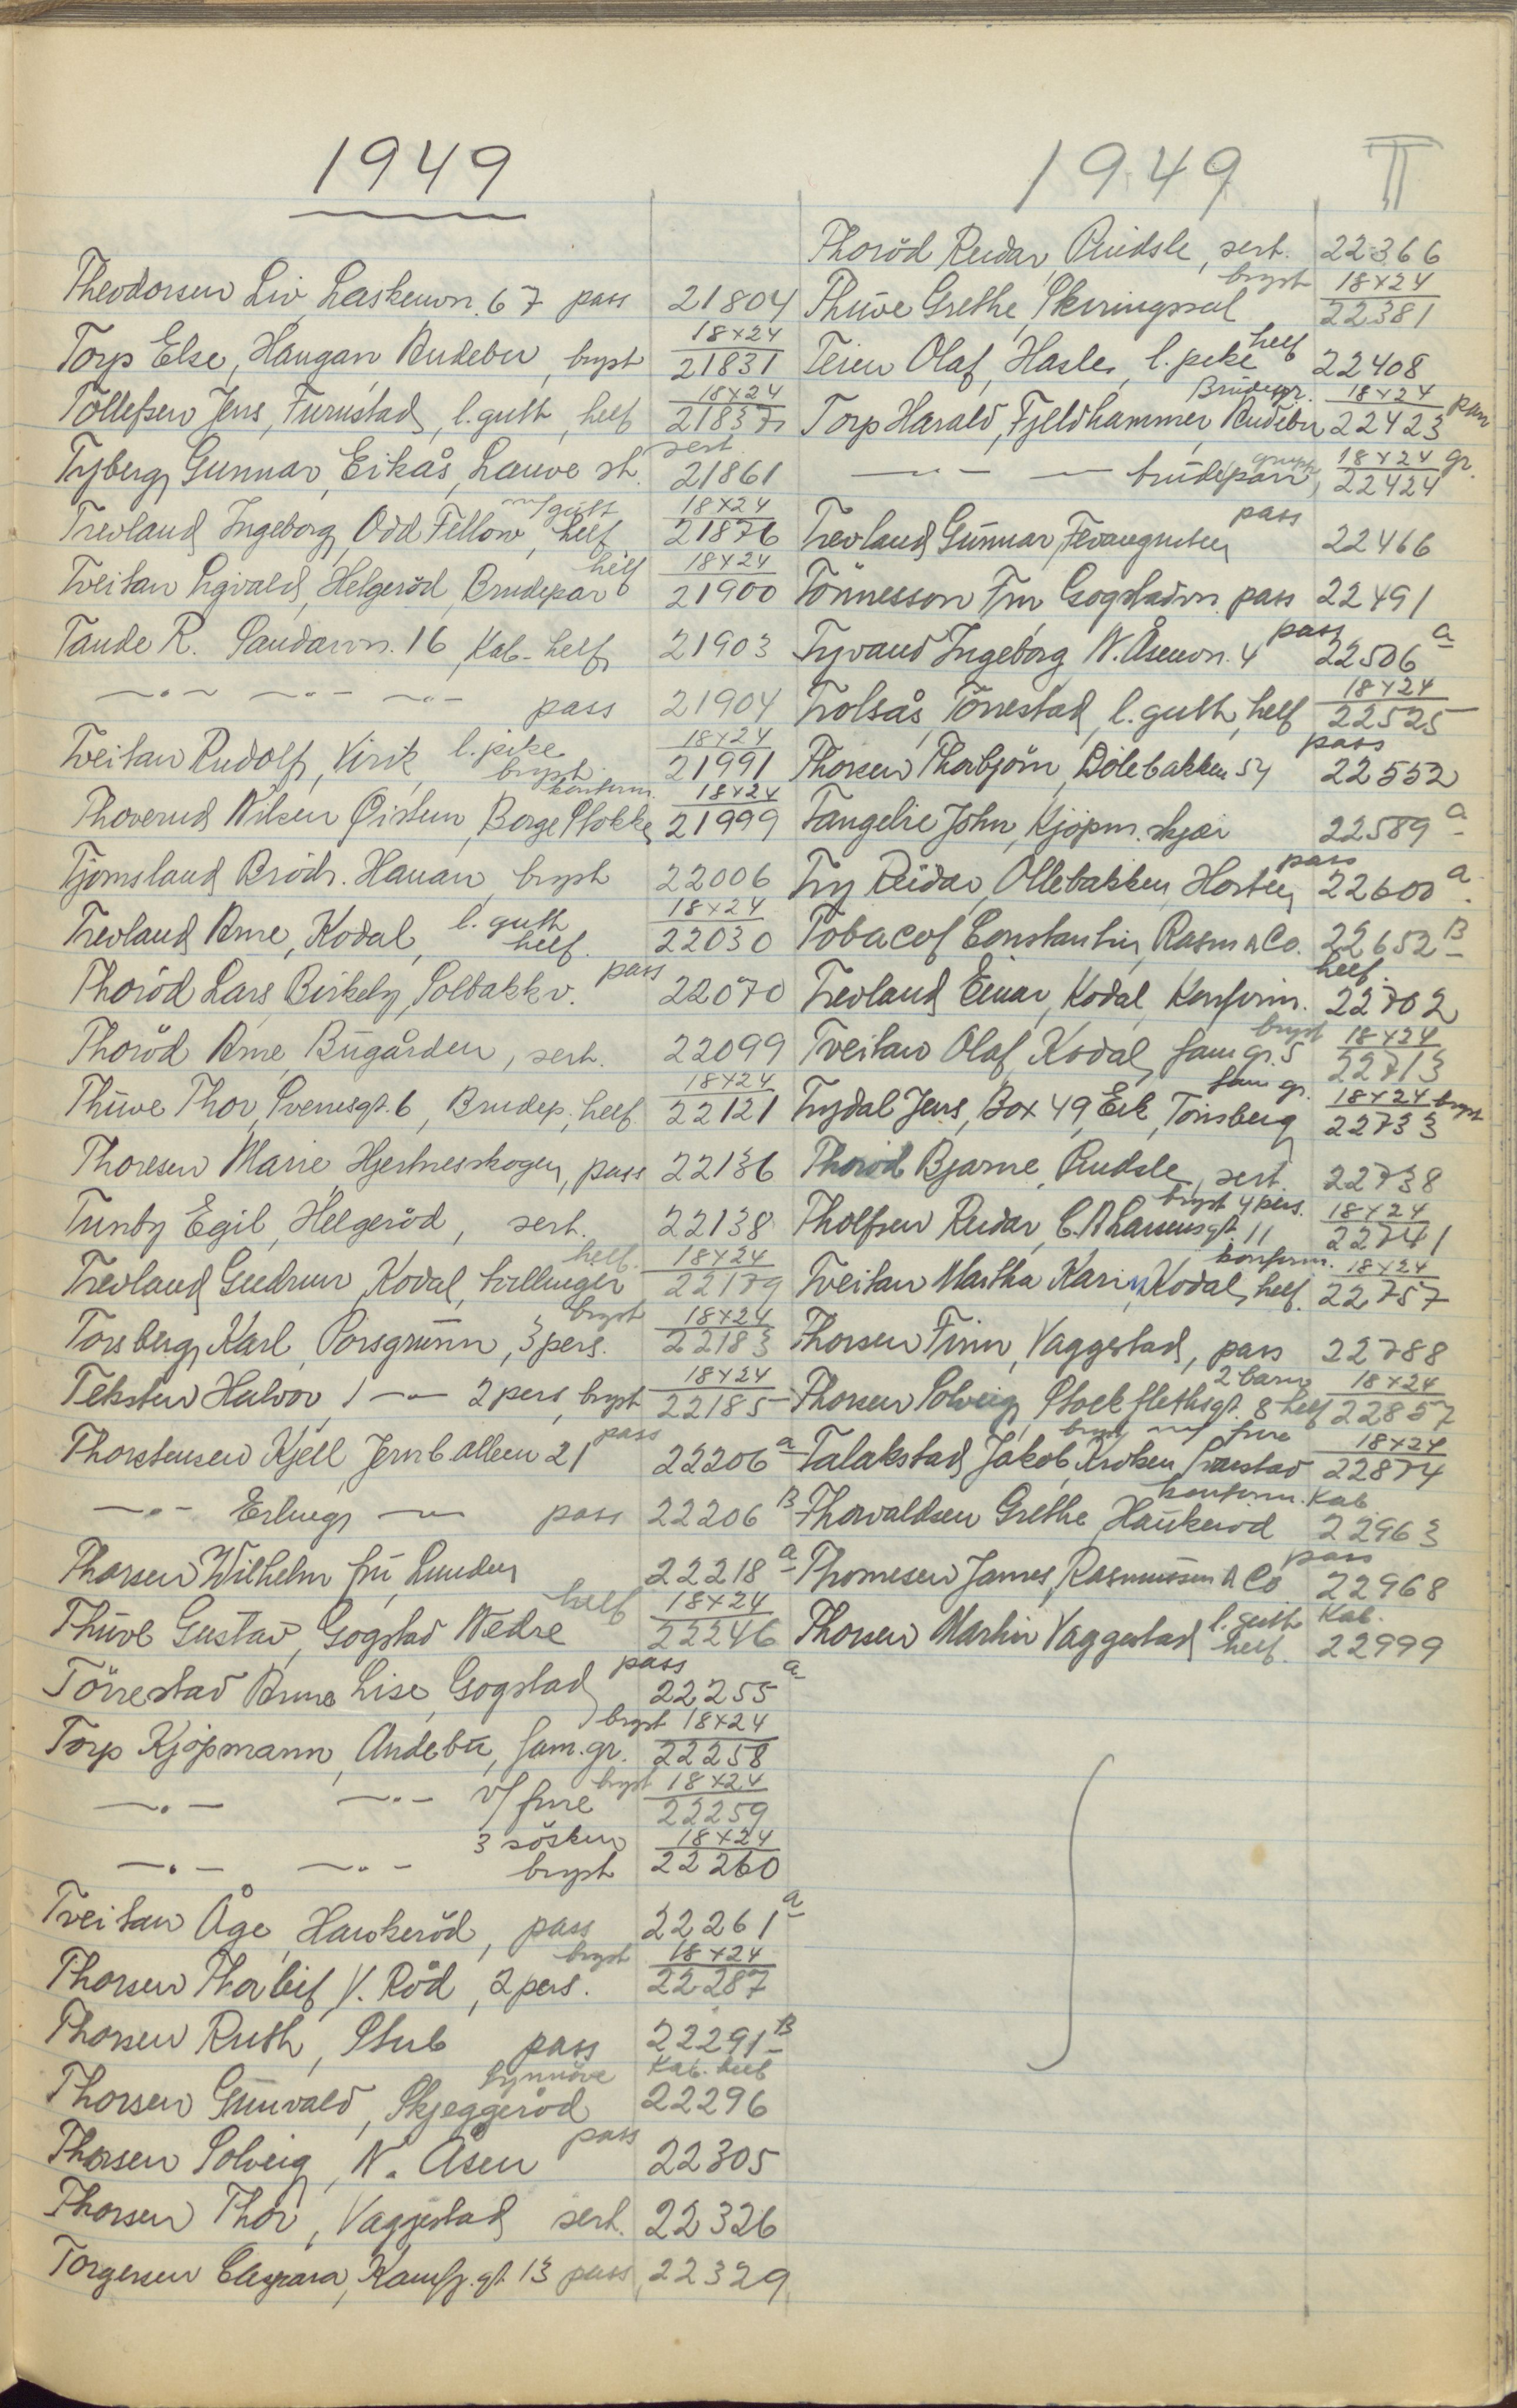 1949
Theodorsen Liv, Laskenvn. 67 pass 21804
Torp Else, Haugan Andebu, bryst 18x24 21831
Tollefsen Jens, Furustad, l. gutt, helf 18x24 21837
Tyberg Gunnar, Eikås, Lauve st. sert. 21861
Trevland Ingeborg, Odd Fellow, m/gutt helf 18x24 21876
Tveitan Sigvald, Helgeröd, Brudepar helf 18x24 21900
Tande R. Sandarvn. 16, Kab-helf 21903
—.— —.— —.— pass 21904
Tveitan Rudolf, Virik, l. pike bryst 18x24 21991
Thoverud Nilsen Øistein, Borge Stokke konfirm. 18x24 21999
Tjomsland Brödr. Hauan, bryst 22006
Trevland Arne, Kodal, l. gutt helf. 18x24 22030
Thoröd Lars, Birkely, Solbakkv. pass 22070
Thoröd Arne, Bugården, sert. 22099
Thuve Thor, Sverresgt. 6, Brudep. helf 18x24 22121
Thoresen Marie, Hjertnesskogen, pass 22136
Tunby Egil, Helgeröd, sert. 22138
Trevland Gudrun, Kodal, tvillinger helf. 18x24 22179
Torsberg Karl, Porsgrunn, 3 pers. bryst 18x24 22183
Teksten Halvor, —"— 2 pers, bryst 18x24 22185
Thorstensen Kjell, Jernb.alleen 21 pass 22206 a
—.— Erling —"— pass 22206 B
Thorsen Wilhelm fru, Lunden 22218 a
Thuve Gustav, Gogstad Nedre helf 18x24 22246
Törrestad Anne Lise, Gogstad pass 22255 a
Torp Kjøpmann, Andebu, fam.gr. bryst 18x24 22258
—.— —.— v/frue bryst 18x24 22259
—.— —.— 3 sösken bryst 18x24 22260
Tveitan Åge, Haukeröd, pass 22261 a
Thorsen Thorleif, V. Röd, 2 pers. bryst 18x24 22287
Thorsen Ruth, Stub pass 22291 B
Thorsen Gunvald, Skjeggeröd Synnöve Kab. helf 22296
Thorsen Solveig, N. Åsen pass 22305
Thorsen Thor, Vaggestad sert. 22326
Torgersen Caspara, Kamfj.gt 13 pass 22329
1949 T
Thoröd Reidar, Pindsle, sert. 22366
Thuve Grethe, Skiringssal bryst 18x24 22381
Teien Olaf, Hasle, l. pike helf 22408
Torp Harald, Fjeldhammer, Andebu Brudepr. 18x24 22423 par
—"— — brudepar, gruppe 18x24 22424 gr.
Trevland Gunnar, pass 22466
Tönnesson Fru Gogstadvn. pass 22491
Tyvand Ingeborg N. Åsenvn. 4 pass 22506 a
Trolsås, Törrestad, l. gutt, helf 18x24 22525
Thorsen Thorbjörn, Dölebakken 54 pass 22552
Tangelie John, Kjöpm. skjær 22589 a
Try Reidar, Ollebakken, Horten pass 22600 a
Tobacof Constantin, Rasm & Co. 22652 B
Trevland Einar, Kodal, Konfirm. helf. 22702
Tveitan Olaf, Kodal, fam gr. 5 bryst 18x24 22713
Trydal Jens, Box 49, Eik, Tönsberg fam gr. 18x24 bryst 22733
Thoröd Bjarne, Pindsle, sert. 22738
Tholfsen Reidar, C. A Larsensgt. 11 bryst 4 pers. 18x24 22741
Tveitan Martha Karin, Kodal, helf. konfirm. 18x24 22757
Thorsen Finn, Vaggestad, pass 22788
Thorsen Solveig, Stockflethsgt. 8 helf 2 barn 18x24 22857
Talakstad Jakob, Kroken Svarstad bryst m/ frue 18x24 22874
Thorvaldsen Grethe, Haukeröd konfirm. Kab. 22963
Thomesen James, Rasmussen & Co pass 22968
Thorsen Martin Vaggestad l. gutt helf. Kab. 22999